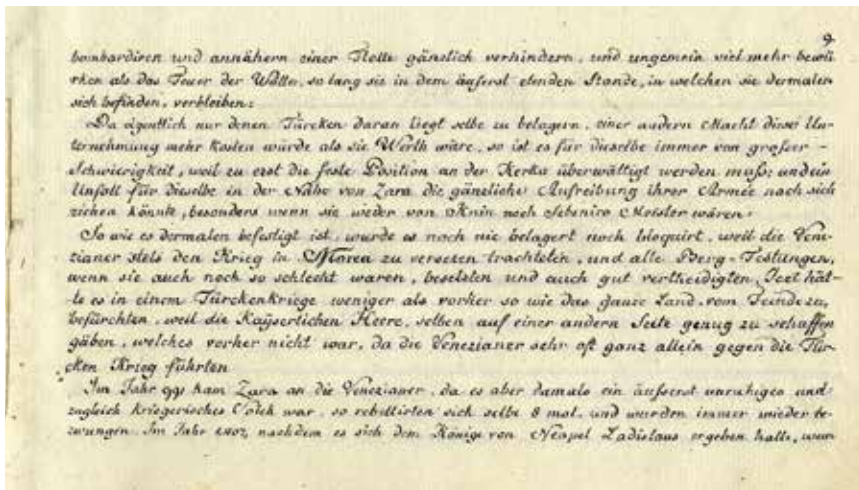 9.
bombardiren und annähern einer Flotte gänzlich verhindern, und ungemein viel mehr bewü-
rken als das Feuer der Wälle, so lang sie in dem äuserst elenden Stande, in welchen sie dermalen
sich befinden, verbleiben:
Da eigentlich nur denen Türcken daran liegt selbe zu belagern, einer andern Macht diese Un-
ternehmung mehr kosten würde als sie Werth wäre, so ist es für dieselbe immer von grosser -
Schwierigkeit, weil zu erst die feste Position an der Kerka überwältigt werden muß; und ein
Unfall für dieselbe in der Nähe von Zara die gänzliche Aufreibung ihrer Armée nach sich
ziehen könnte, besonders wenn sie weder von Knin noch Sebenico Meister wären:
So wie es dermalen befestigt ist, wurde es noch nie belagert noch bloquirt, weil die Vene-
zianer stets den Krieg in Morea zu versezen trachteten, und alle Berg-Festungen,
wenn sie auch noch so schlecht waren, besetzten und auch gut vertheidigten, Jezt hät-
te es in einem Türckenkriege weniger als vorher so wie das ganze Land, vom Feinde zu
befürchten, weil die Kaÿserlichen Heere, selben auf einer andern Seite genug zu schaffen
gäben, welches vorher nicht war, da die Venezianer sehr oft ganz allein gegen die Tür-
cken Krieg führten
Im Jahr 991 kam Zara an die Venezianer, da es aber damals ein äusserst unruhiges und
zugleich kriegerisches Volck war, so rebellirten sich selbe 8 mal, und wurden immer wieder be-
zwungen. Im Jahr 1402, nachdem es sich dem Könige von Neapel Ladislaus ergeben hatte, wur-